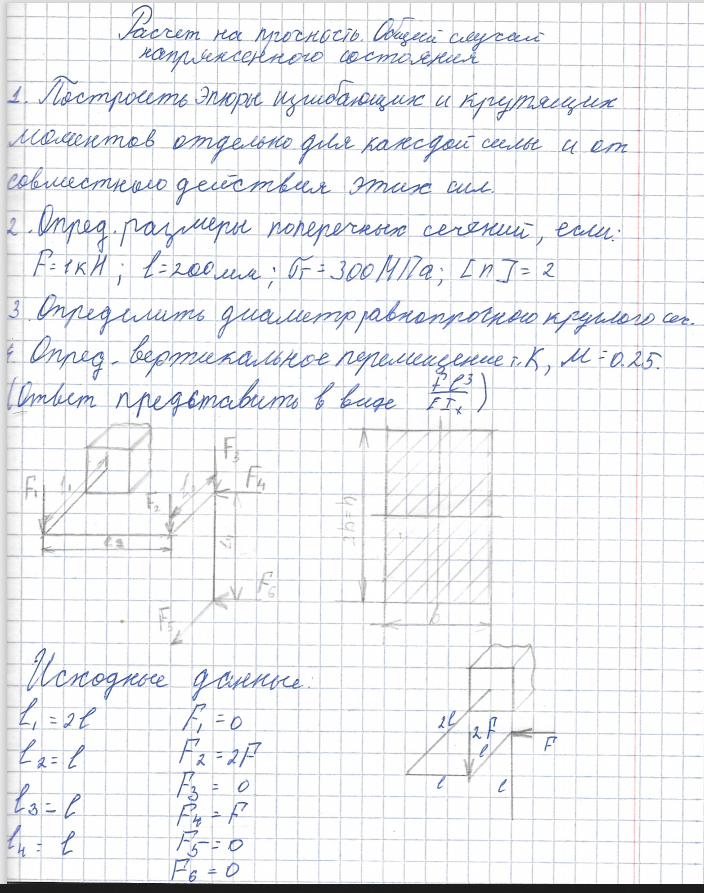 Расчет на прочность. Общий случай
напряженного состояния
1. Построить эпюры изгибающих и крутящих
моментов отдельно для каждой силы и от
совместного действия этих сил.
2. Опред. размеры поперечных сечений, если:
F=1кН; l=200мм; σт=300МПа; [n]=2
3. Определить диаметр равнопрочного круглого сеч.
4. Опред. вертикальное перемещение т.К, M=0.25.
(Ответ представить в виде Fl³/EIx)
F1 l1 F2 l3 F3 F4
l2 l4
F5 F6
2b=h
b
Исходные данные:
l1 = 2l F1 = 0
l2 = l F2 = 2F
F3 = 0
l3 = l F4 = F
l4 = l F5 = 0
F6 = 0
2l 2F l F
l l